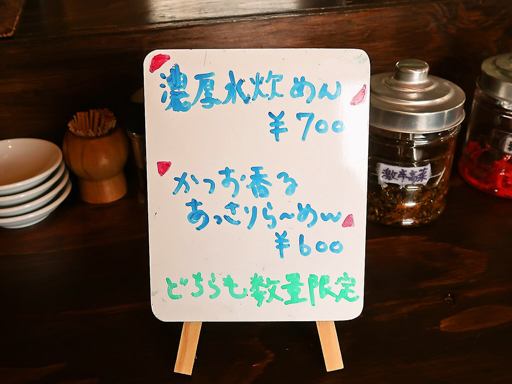 濃厚水炊めん
¥700
かつお香る
あっさりら〜めん
¥600
どちらも数量限定
激辛高菜